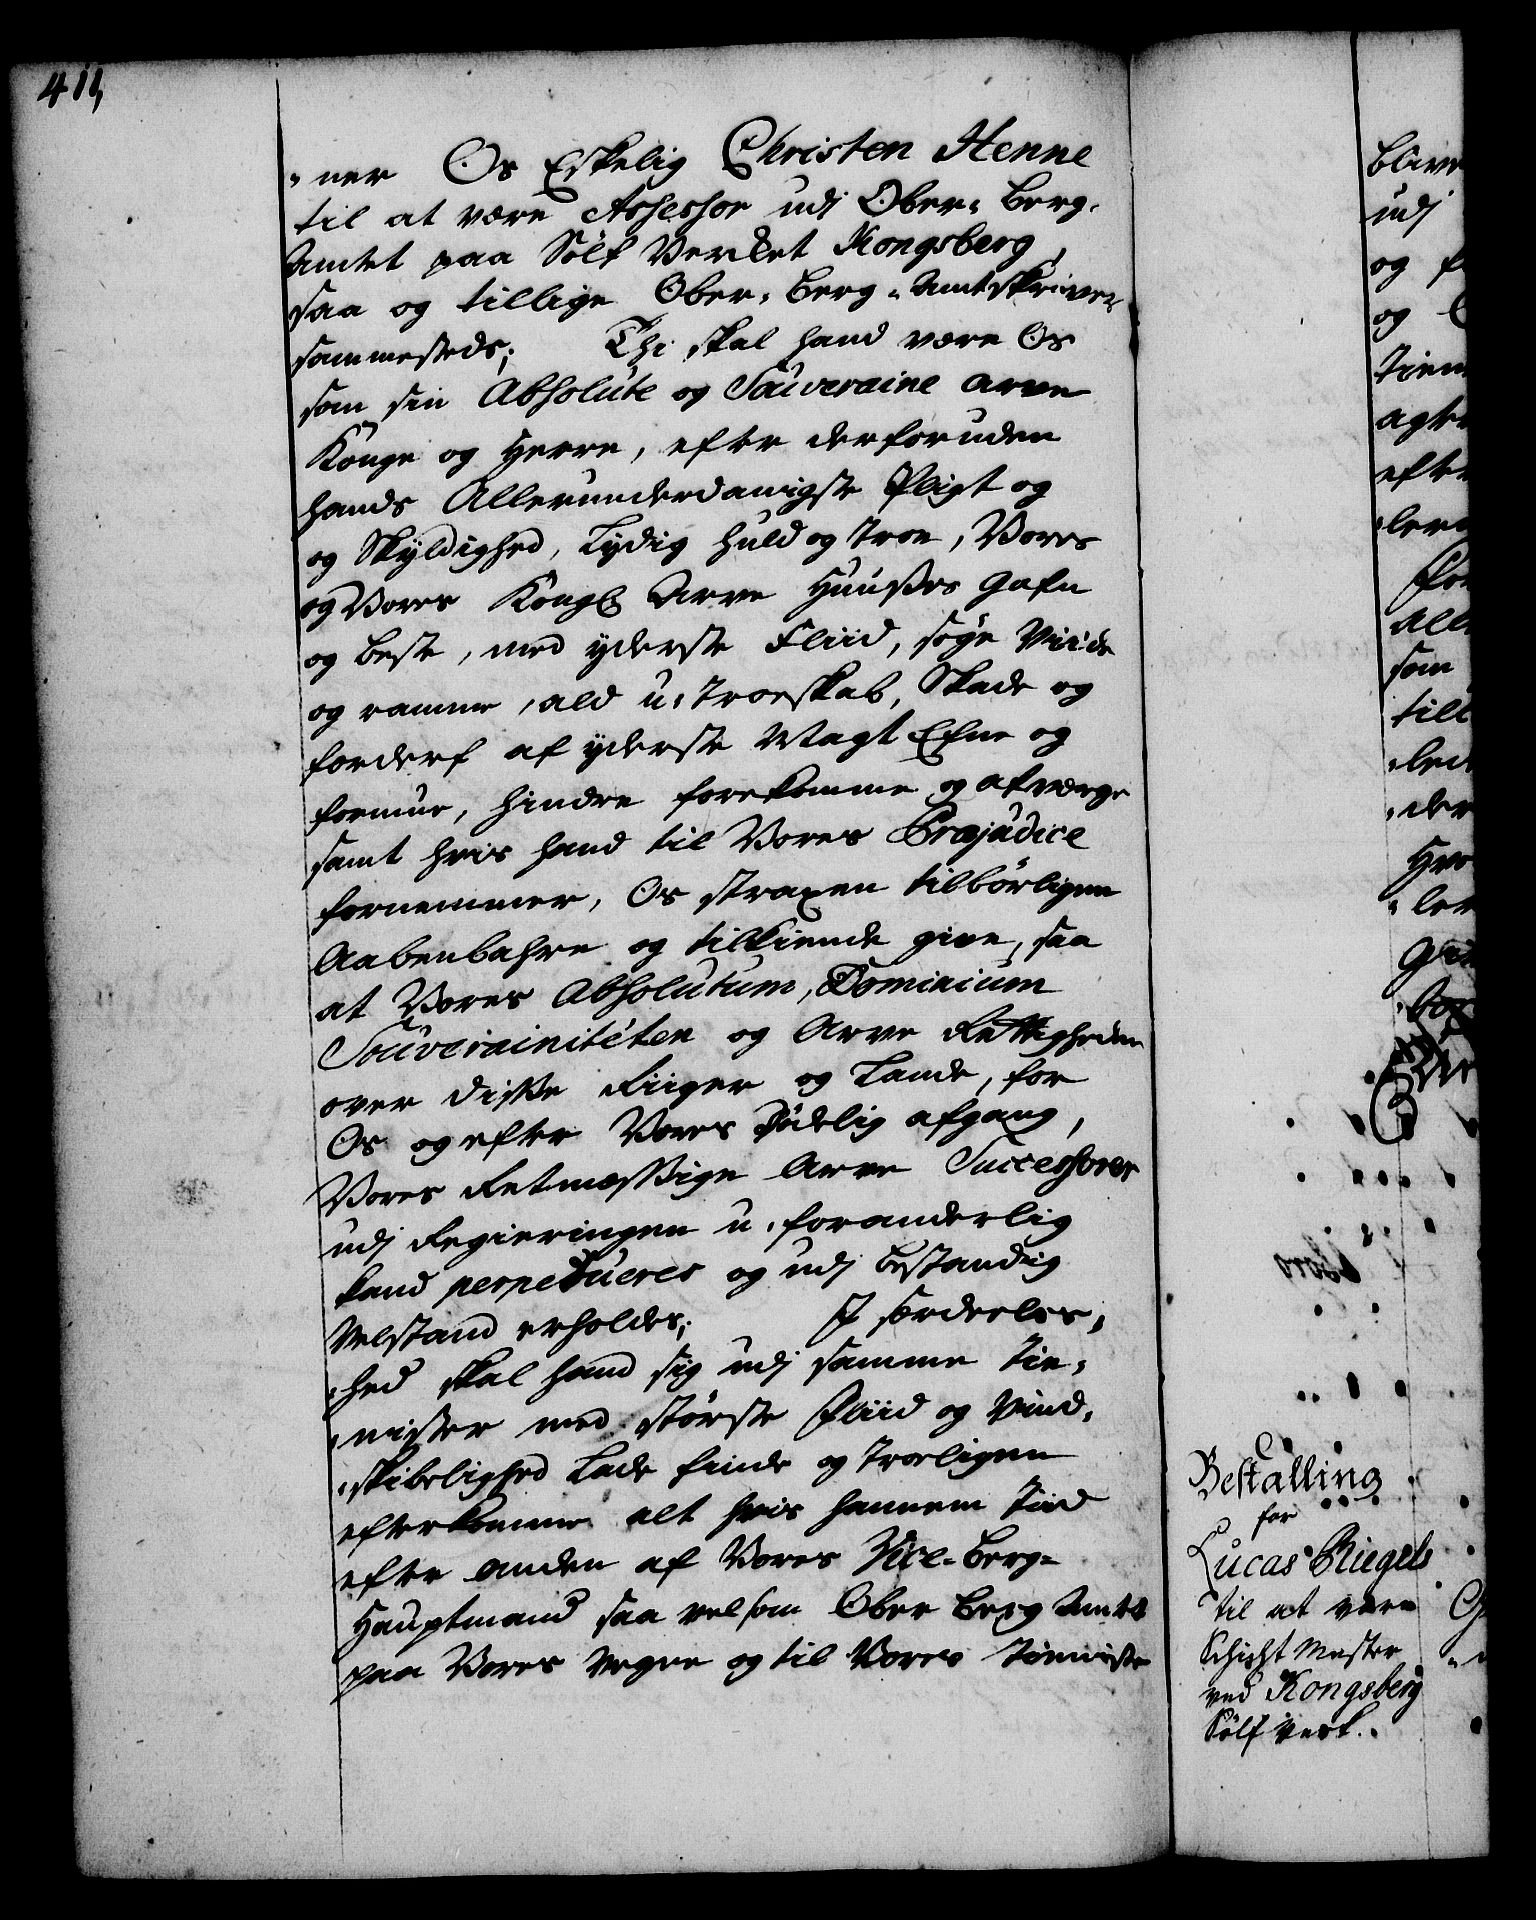 411
„ner Os Elskelig Christen Henne
til at være Assessor udj Ober-Berg-
Amtet paa Sölf Verket Kongsberg,
saa og tillige Ober-Berg-Amtskriver
sammesteds; Thi skal hand være Os
som sin Absolute og Souveraine Arve
Konge og Herre, efter derforuden
hands Allerunderdanigste Pligt og
og Skyldighed, Lydig huld og troe, Vores
og Vores Kongl Arve Huuses Gafn
og beste, med yderste Fliid, søge Viide
og ramme, ald u-troeskab, Skade og
forderf af yderste Magt Efne og
formue, hindre forekomme og afværge
samt hvis hand til Vores Præjudice
fornemmer, Os straxen tilbørligen
Aabenbahre og tilkiende give, saa
at Vores Absolutum, Dominium
Souverainitéten og Arve Rettigheden
over disse Riiger og Lande, for
Os og efter Vores Dødelig afgang,
Vores Retmæssige Arve Successores
udj Regieringen u-foranderlig
kand perpetueres og udj bestandig
Velstand erholdes; J særdeeles-
„hed skal hand sig udj samme tie-
„nister med største Fliid og Vind-
„skibelighed Lade finde og troeligen
efterkomme alt hvis hannem tiid
efter anden af Vores Vice-Berg-
Hauptmand saa velsom Ober Berg Amtet
paa Vores Vegne og til Vores tieniste
blive
udj
og
og
tien
agte
efter
som
Bestalling
for
Lucas Riegels
til at være
Schicht Mester
ved Kongsberg
Sölf Verk.